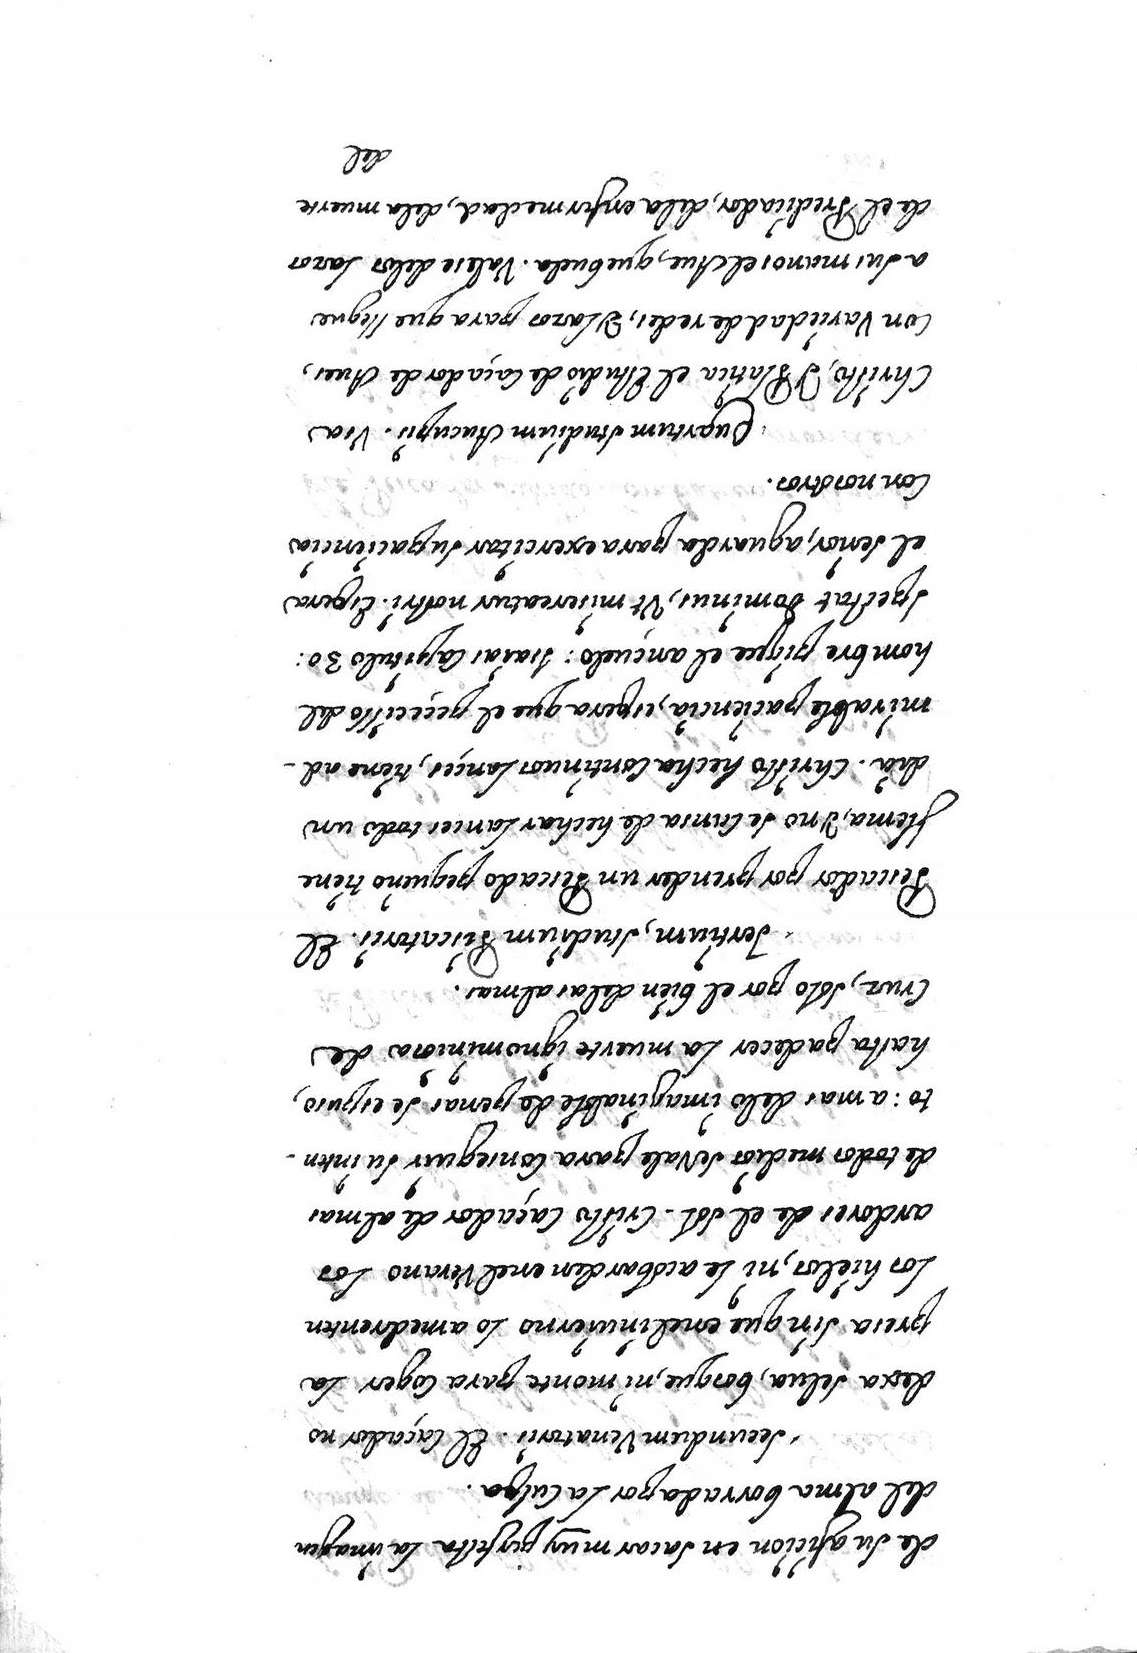 de su aficion en sacar muy perfecta la imagen
del alma borrada por la culpa.
Secundum Venatoris. El Caçador no
dexa selua, bosque, ni monte para coger la
presa sin que en el inuierno lo amedrenten
los hielos, ni le acobarden en el Verano los
ardores de el sol. Cristo Caçador de almas
de todos medios se Vale para conseguir su inten-
to: a mas delo imaginable de penas se expuso,
hasta padecer la muerte ignominiosa de
Cruz, solo por el bien delas almas.
Tertium, studium Piscatoris. El
Pescador por prender un Pescado pequeño tiene
flema, y no se cansa de hechar lances todo un
dia. Christo hecha continuos lançes, tiene ad-
mirable paciencia, espera que el pececillo del
hombre pique el ançuelo: Isaias Capitulo 30:
Spectat Dominus, Vt misereatur nostri. Espera
el señor, aguarda para exercitar su paciencia
con nosotros.
Quartum studium Aucupis. Via
Christo, y Platica el Estudio de Caçador de Aues,
con Variedad de redes, y lazos para que llegue
a sus manos el Aue, que buela. Valese delos lazos
de el Predicador, dela enfermedad, dela muerte
del